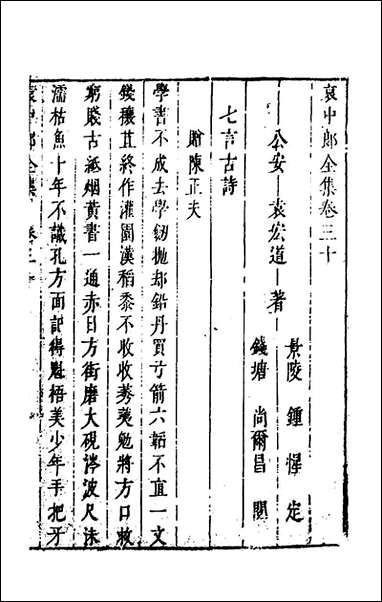 袁中郎全集卷三十
景陵 鍾惺 定
公安 袁宏道 著
錢塘 尚爾昌 閱
七言古詩
贈陳正夫
學書不成去學劒拋却鉛丹買寸箭六韜不直一文
錢穰苴終作灌園漢稻黍不收收莠稗勉將方口救
窮賤古紙烟黃書一通赤日方街磨大硯涔波尺沫
濡枯魚十年不識孔方面記得魁梧美少年手把牙
袁中郎全集 卷三十